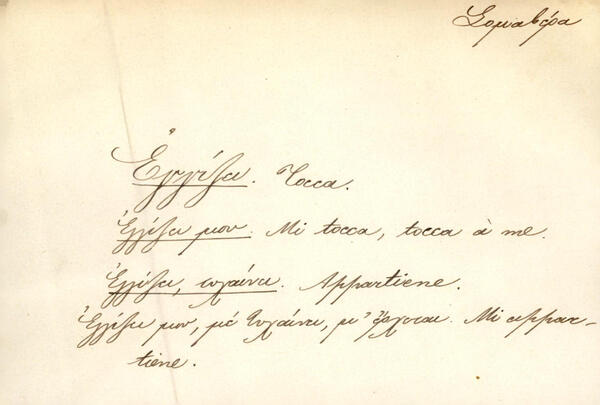 Σομαβέρα
Ἐγγίζει. Tocca.
Ἐγγίζει μου. Mi tocca, tocca à me.
Ἐγγίζει, τυχαίνει. Appartiene.
Ἐγγίζει μου, μὲ τυχαίνει, μ' ἔρχεται. Mi appar-
tiene.